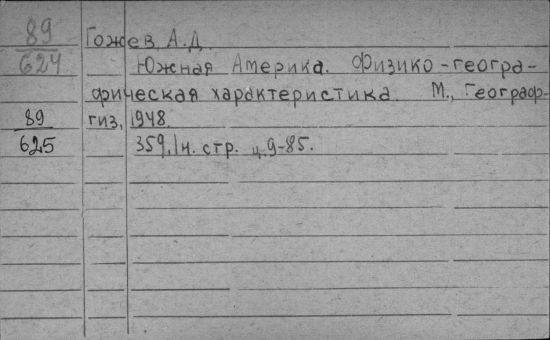 89
624
Гожев, А.Д.
Южная Америка. Физико-геогра-
фическая характеристика. М., Географ-
гиз, 1948.
359, 1н. стр. ц. 9-85.
89
625